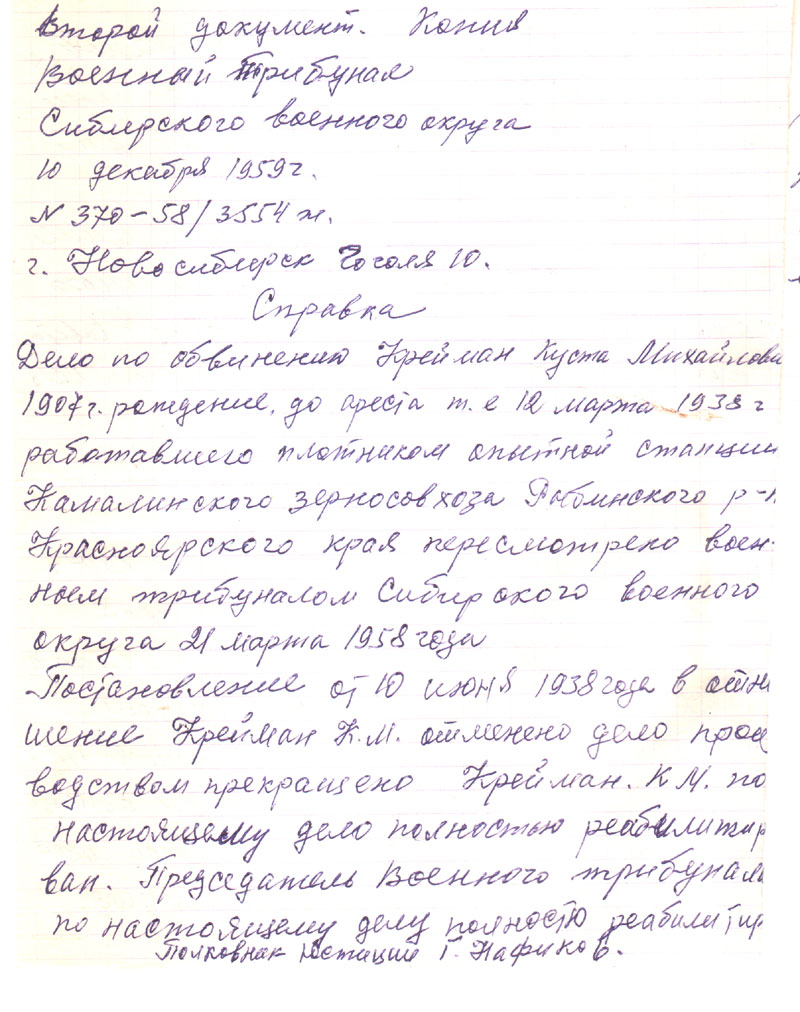 Второй документ. Копия
Военный трибунал
Сибирского военного округа
10 декабря 1959г.
N 370-58/3554 н.
г. Новосибирск Гоголя 10.
Справка
Дело по обвинению Крейман Куста Михайлови
1907г. рождение, до ареста т.е 12 марта 1938 г
работавшего плотником опытной станции
Камалинского зерносовхоза Рыбинского р-н
Красноярского края пересмотрено воен-
ным трибуналом Сибирского военного
округа 21 марта 1958 года
Постановление от 10 июня 1938 года в отно
шение Крейман К.М. отменено дело прои
водством прекращено Крейман. К М. по
настоящему дело полностью реабилитир
ван. Председатель Военного трибунала
по настоящему делу полностю реабилитир
Полковник Юстиции Г. Нафиков.